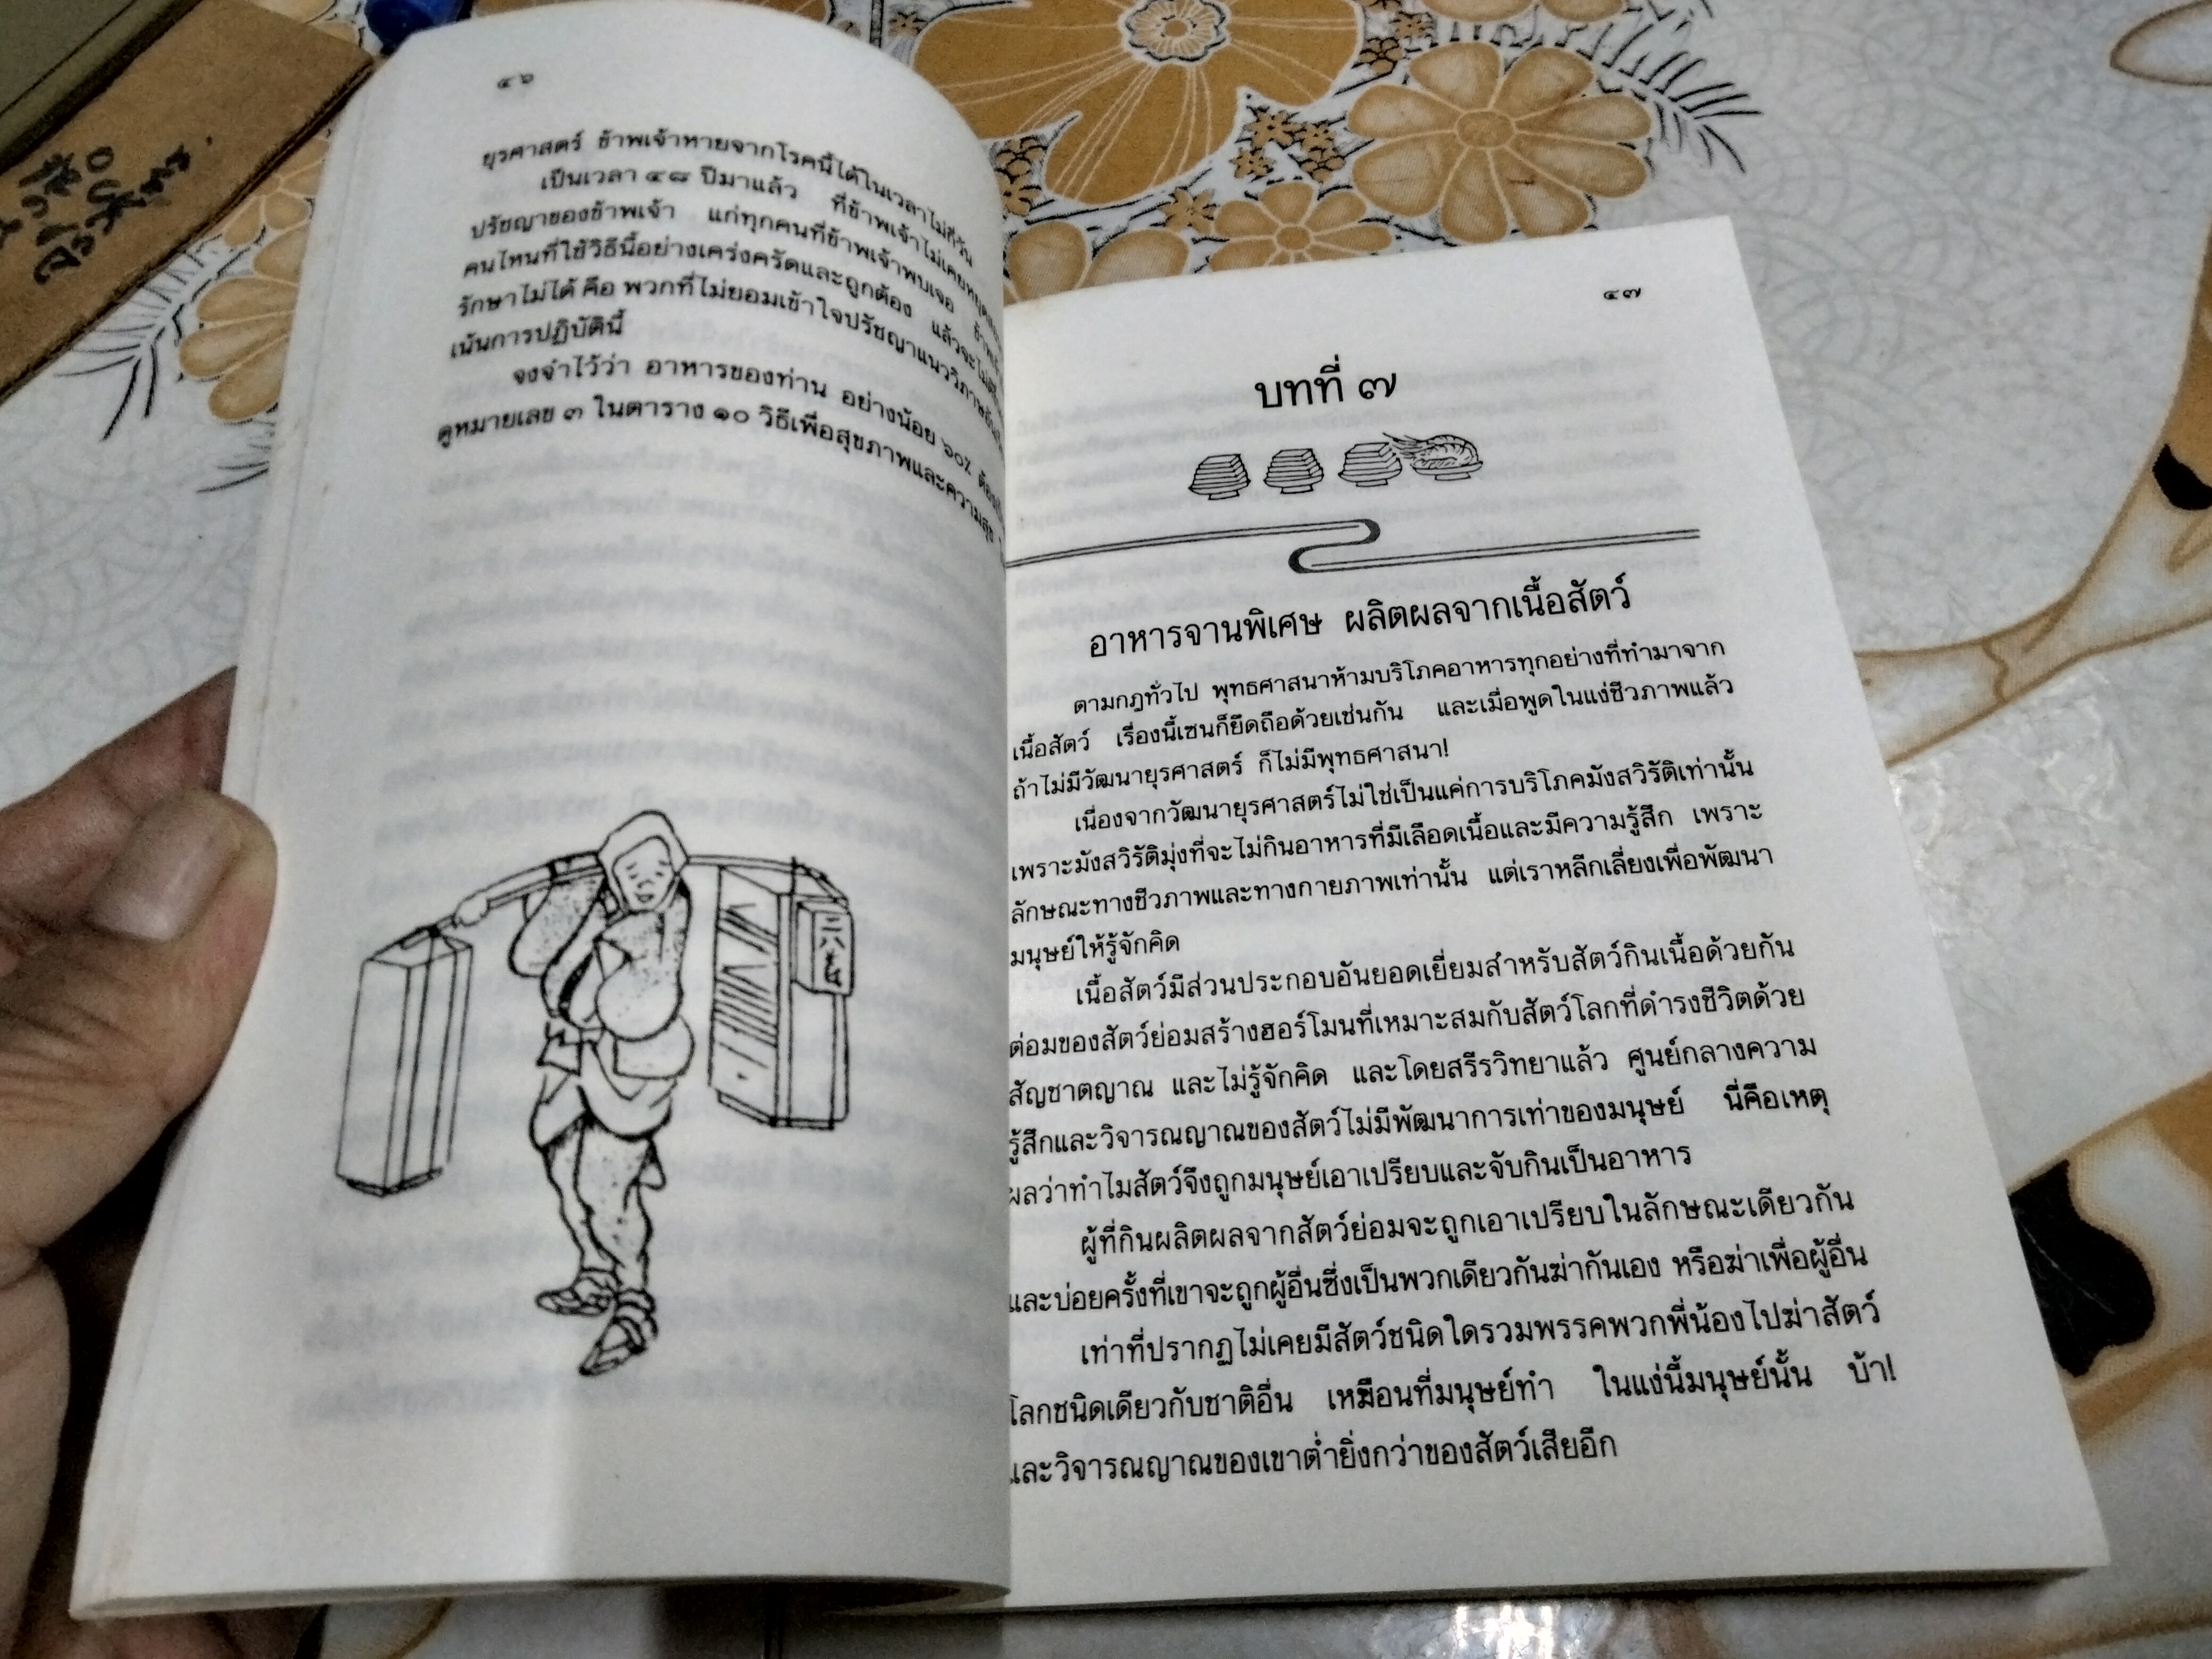 ๔๖
ยุรศาสตร์ ข้าพเจ้าหายจากโรคนี้ได้ในเวลาไม่กี่วัน
เป็นเวลา ๔๘ ปีมาแล้ว ที่ข้าพเจ้าไม่เคยหยุด
ปรัชญาของข้าพเจ้า แก่ทุกคนที่ข้าพเจ้าพบเจอ
คนไหนที่ใช้วิธีนี้อย่างเคร่งครัดและถูกต้อง แล้วจะไม่
รักษาไม่ได้ คือ พวกที่ไม่ยอมเข้าใจปรัชญาแนววิภาษ
เน้นการปฏิบัตินี้
จงจำไว้ว่า อาหารของท่าน อย่างน้อย ๖๐% ต้อง
ดูหมายเลข ๓ ในตาราง ๑๐ วิธีเพื่อสุขภาพและความสุข
๔๗
บทที่ ๗
อาหารจานพิเศษ ผลิตผลจากเนื้อสัตว์
ตามกฎทั่วไป พุทธศาสนาห้ามบริโภคอาหารทุกอย่างที่ทำมาจาก
เนื้อสัตว์ เรื่องนี้เซนก็ยึดถือด้วยเช่นกัน และเมื่อพูดในแง่ชีวภาพแล้ว
ถ้าไม่มีวัฒนายุรศาสตร์ ก็ไม่มีพุทธศาสนา!
เนื่องจากวัฒนายุรศาสตร์ไม่ใช่เป็นแค่การบริโภคมังสวิรัติเท่านั้น
เพราะมังสวิรัติมุ่งที่จะไม่กินอาหารที่มีเลือดเนื้อและมีความรู้สึก เพราะ
ลักษณะทางชีวภาพและทางกายภาพเท่านั้น แต่เราหลีกเลี่ยงเพื่อพัฒนา
มนุษย์ให้รู้จักคิด
เนื้อสัตว์มีส่วนประกอบอันยอดเยี่ยมสำหรับสัตว์กินเนื้อด้วยกัน
ต่อมของสัตว์ย่อมสร้างฮอร์โมนที่เหมาะสมกับสัตว์โลกที่ดำรงชีวิตด้วย
สัญชาตญาณ และไม่รู้จักคิด และโดยสรีรวิทยาแล้ว ศูนย์กลางความ
รู้สึกและวิจารณญาณของสัตว์ไม่มีพัฒนาการเท่าของมนุษย์ นี่คือเหตุ
ผลว่าทำไมสัตว์จึงถูกมนุษย์เอาเปรียบและจับกินเป็นอาหาร
ผู้ที่กินผลิตผลจากสัตว์ย่อมจะถูกเอาเปรียบในลักษณะเดียวกัน
และบ่อยครั้งที่เขาจะถูกผู้อื่นซึ่งเป็นพวกเดียวกันฆ่ากันเอง หรือฆ่าเพื่อผู้อื่น
เท่าที่ปรากฏไม่เคยมีสัตว์ชนิดใดรวมพรรคพวกพี่น้องไปฆ่าสัตว์
โลกชนิดเดียวกับชาติอื่น เหมือนที่มนุษย์ทำ ในแง่นี้มนุษย์นั้น บ้า!
และวิจารณญาณของเขาต่ำยิ่งกว่าของสัตว์เสียอีก